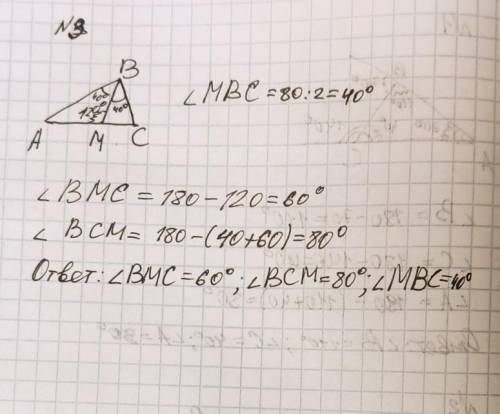 №3
B
40°
40°
120°
A M C
∠MBC = 80:2=40°
∠BMC = 180-120=60°
∠ BCM= 180-(40+60)=80°
Ответ: ∠BMC=60°; ∠BCM=80°; ∠MBC=40°